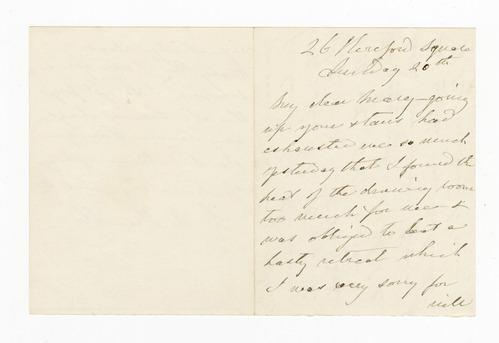 26 Hereford Square
Sunday 20th
My dear Mary – going
up your stairs had
exhausted me so much
yesterday that I found the
heat of the drawing room
too much for me &
was obliged to beat a
hasty retreat which
I was very sorry for
will